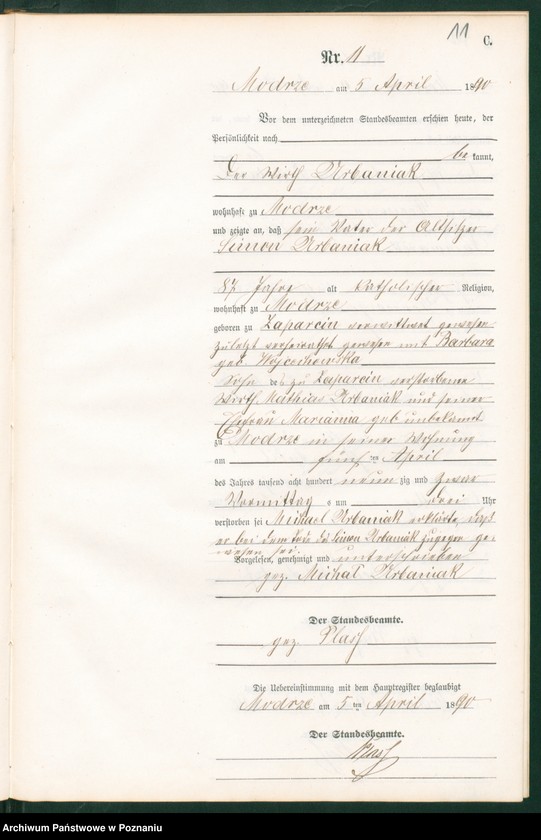 11
C.
Nr. 11
Modrze am 5 April 1890
Vor dem unterzeichneten Standesbeamten erschien heute, der
Persönlichkeit nach
be kannt,
Der Wirth Urbaniak
wohnhaft zu Modrze
und zeigte an, daß sein Vater der Altsitzer
Simon Urbaniak
87 Jahre alt katholischer Religion,
wohnhaft zu Modrze
geboren zu Zaparcin verwittwet gewesen
zuletzt verheirathet gewesen mit Barbara
geb. Wojcechowska
Sohn des zu Zaparcin verstorbenen
Wirth Mathias Urbaniak und seiner
Ehefrau Marianna geb unbekannt
zu Modrze in seiner Wohnung
am fünf ten April
des Jahres tausend acht hundert neun zig und zwar
Vormittag s um drei Uhr
verstorben sei Michael Urbaniak erklärte, daß
er bei dem Tode des Simon Urbaniak zugegen ge-
wesen sei.
Vorgelesen, genehmigt und unterschrieben
gez. Michał Urbaniak
Der Standesbeamte.
gez.
Die Uebereinstimmung mit dem Hauptregister beglaubigt
Modrze am 5 ten April 1890
Der Standesbeamte.
Archiwum Państwowe w Poznaniu